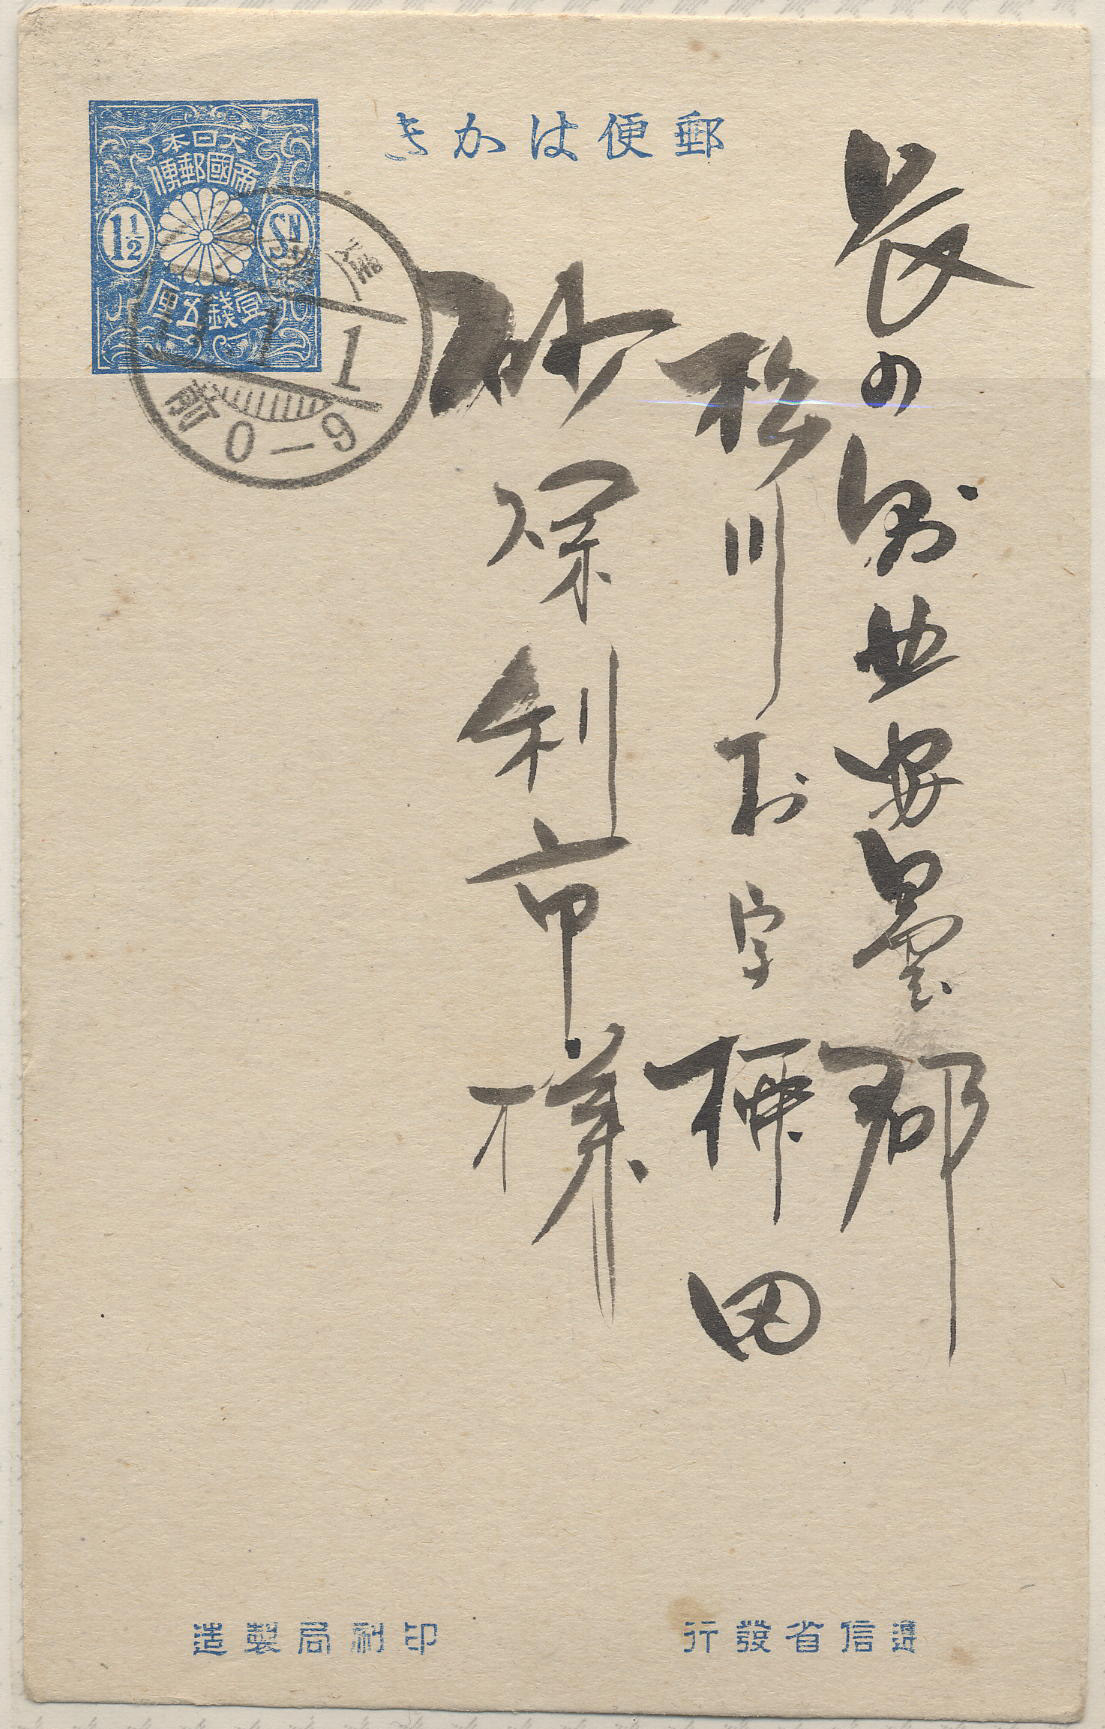 郵便はかき
大日本
帝國郵便
1½
SN
壹錢五厘
1
前0-9
長の県北安曇郡
松川村字
田
利市様
遞信省發行
印刷局製造